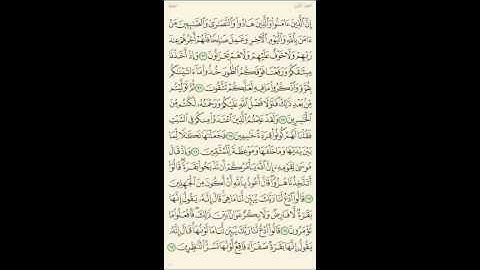 إِنَّ ٱلَّذِينَ ءَامَنُوا۟ وَٱلَّذِينَ هَادُوا۟ وَٱلنَّصَـٰرَىٰ وَٱلصَّـٰبِـِٔينَ مَنْ
ءَامَنَ بِٱللَّهِ وَٱلْيَوْمِ ٱلْـَٔاخِرِ وَعَمِلَ صَـٰلِحًا فَلَهُمْ أَجْرُهُمْ عِندَ
رَبِّهِمْ وَلَا خَوْفٌ عَلَيْهِمْ وَلَا هُمْ يَحْزَنُونَ ٦٢ وَإِذْ أَخَذْنَا
مِيثَـٰقَكُمْ وَرَفَعْنَا فَوْقَكُمُ ٱلطُّورَ خُذُوا۟ مَآ ءَاتَيْنَـٰكُم
بِقُوَّةٍ وَٱذْكُرُوا۟ مَا فِيهِ لَعَلَّكُمْ تَتَّقُونَ ٦٣ ثُمَّ تَوَلَّيْتُم
مِّنۢ بَعْدِ ذَٰلِكَ فَلَوْلَا فَضْلُ ٱللَّهِ عَلَيْكُمْ وَرَحْمَتُهُۥ لَكُنتُم مِّنَ
ٱلْخَـٰسِرِينَ ٦٤ وَلَقَدْ عَلِمْتُمُ ٱلَّذِينَ ٱعْتَدَوْا۟ مِنكُمْ فِى ٱلسَّبْتِ
فَقُلْنَا لَهُمْ كُونُوا۟ قِرَدَةً خَـٰسِـِٔينَ ٦٥ فَجَعَلْنَـٰهَا نَكَـٰلًا لِّمَا
بَيْنَ يَدَيْهَا وَمَا خَلْفَهَا وَمَوْعِظَةً لِّلْمُتَّقِينَ ٦٦ وَإِذْ قَالَ
مُوسَىٰ لِقَوْمِهِۦٓ إِنَّ ٱللَّهَ يَأْمُرُكُمْ أَن تَذْبَحُوا۟ بَقَرَةً قَالُوٓا۟
أَتَتَّخِذُنَا هُزُوًا قَالَ أَعُوذُ بِٱللَّهِ أَنْ أَكُونَ مِنَ ٱلْجَـٰهِلِينَ
٦٧ قَالُوا۟ ٱدْعُ لَنَا رَبَّكَ يُبَيِّن لَّنَا مَا هِىَ قَالَ إِنَّهُۥ يَقُولُ إِنَّهَا
بَقَرَةٌ لَّا فَارِضٌ وَلَا بِكْرٌ عَوَانٌۢ بَيْنَ ذَٰلِكَ فَٱفْعَلُوا۟ مَا
تُؤْمَرُونَ ٦٨ قَالُوا۟ ٱدْعُ لَنَا رَبَّكَ يُبَيِّن لَّنَا مَا لَوْنُهَا قَالَ إِنَّهُۥ
يَقُولُ إِنَّهَا بَقَرَةٌ صَفْرَآءُ فَاقِعٌ لَّوْنُهَا تَسُرُّ ٱلنَّـٰظِرِينَ ٦٩